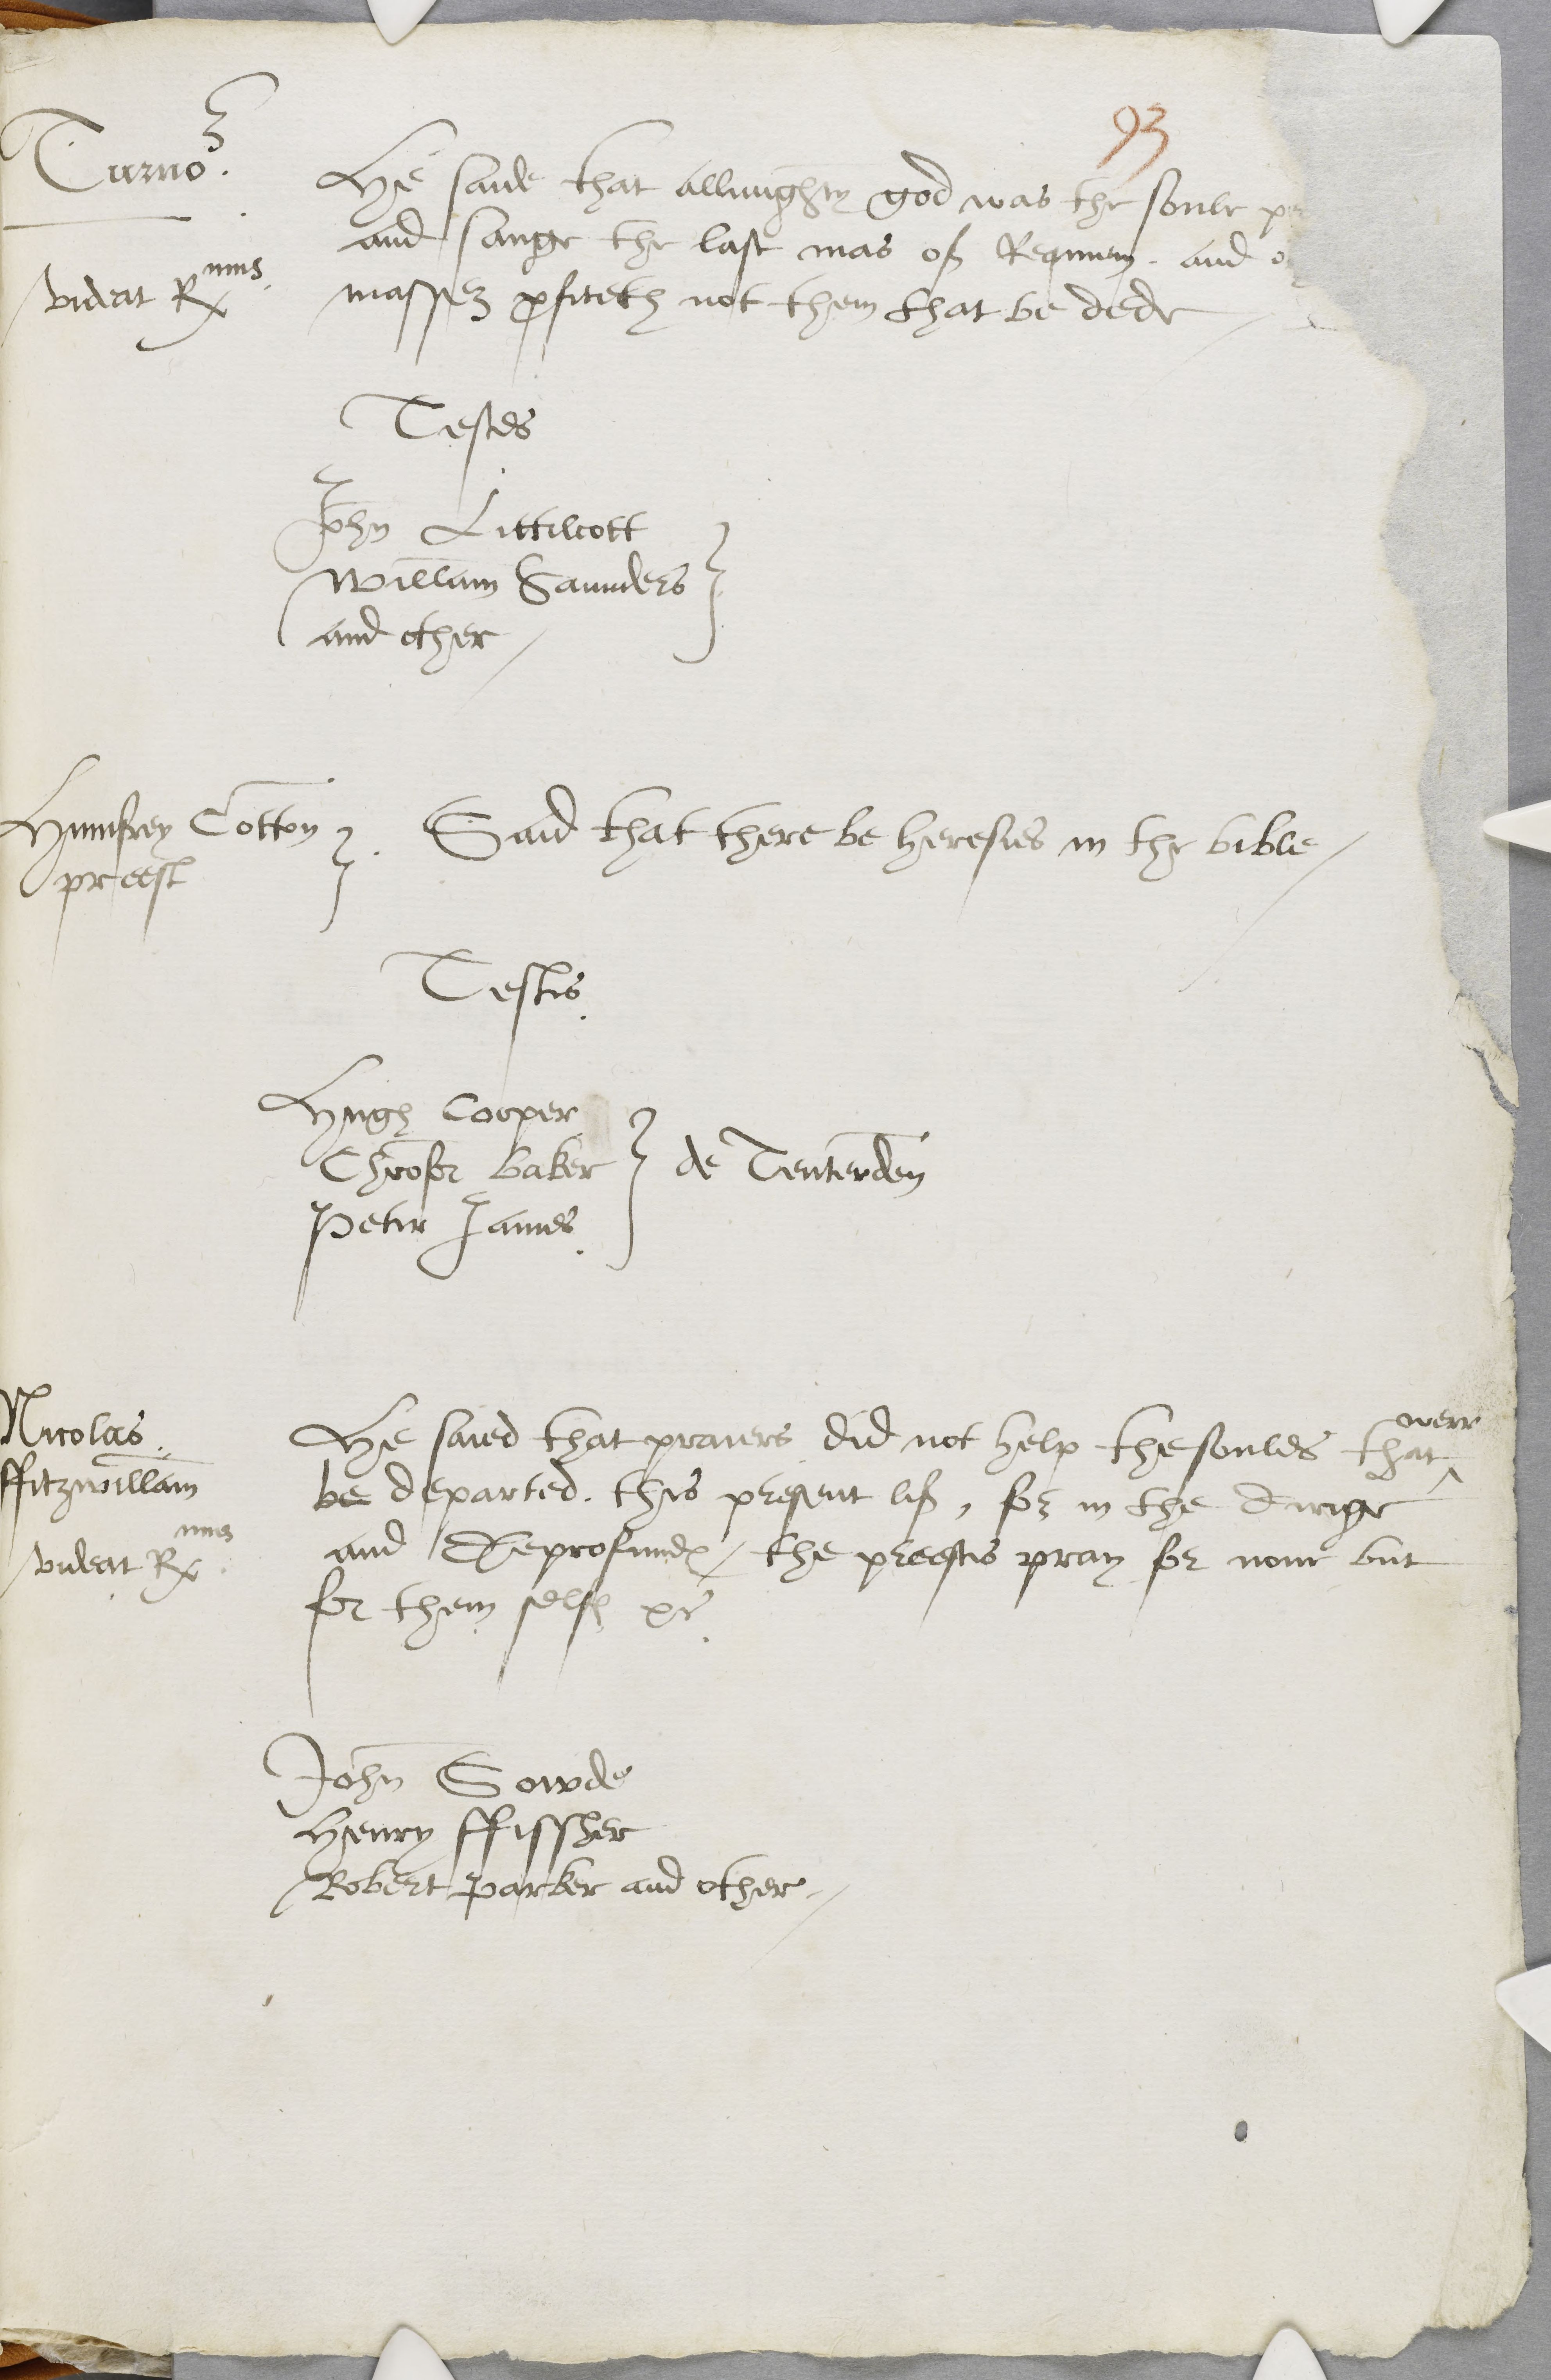 93
Turno2.
He saide that allmighty god was the soule
videat Rxmus.
and sange the last mas off Requiem. and
massez pfiteth not them that be dede
Testes
John Littilcott
William Saunders
and other
Humfrey Cotton
preest
Said that there be heresies in the bible
Testis.
Hugh Cooper
Chrofer baker
Peter James.
de Tenterden
Nicolas
ffitzwilliam
videat Rxmus
He saied that praiers did not help the soules that were
be departed. this present liff, for in the dirige
and Deprofundis the preestis pray for none but
for them self xc.
John Gowde
Henry ffissher
Robert Parker and other